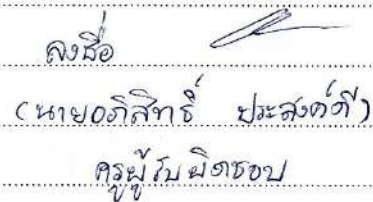 ลงชื่อ
(นายอภิสิทธิ์ ประสงค์ดี)
ครูผู้รับผิดชอบ